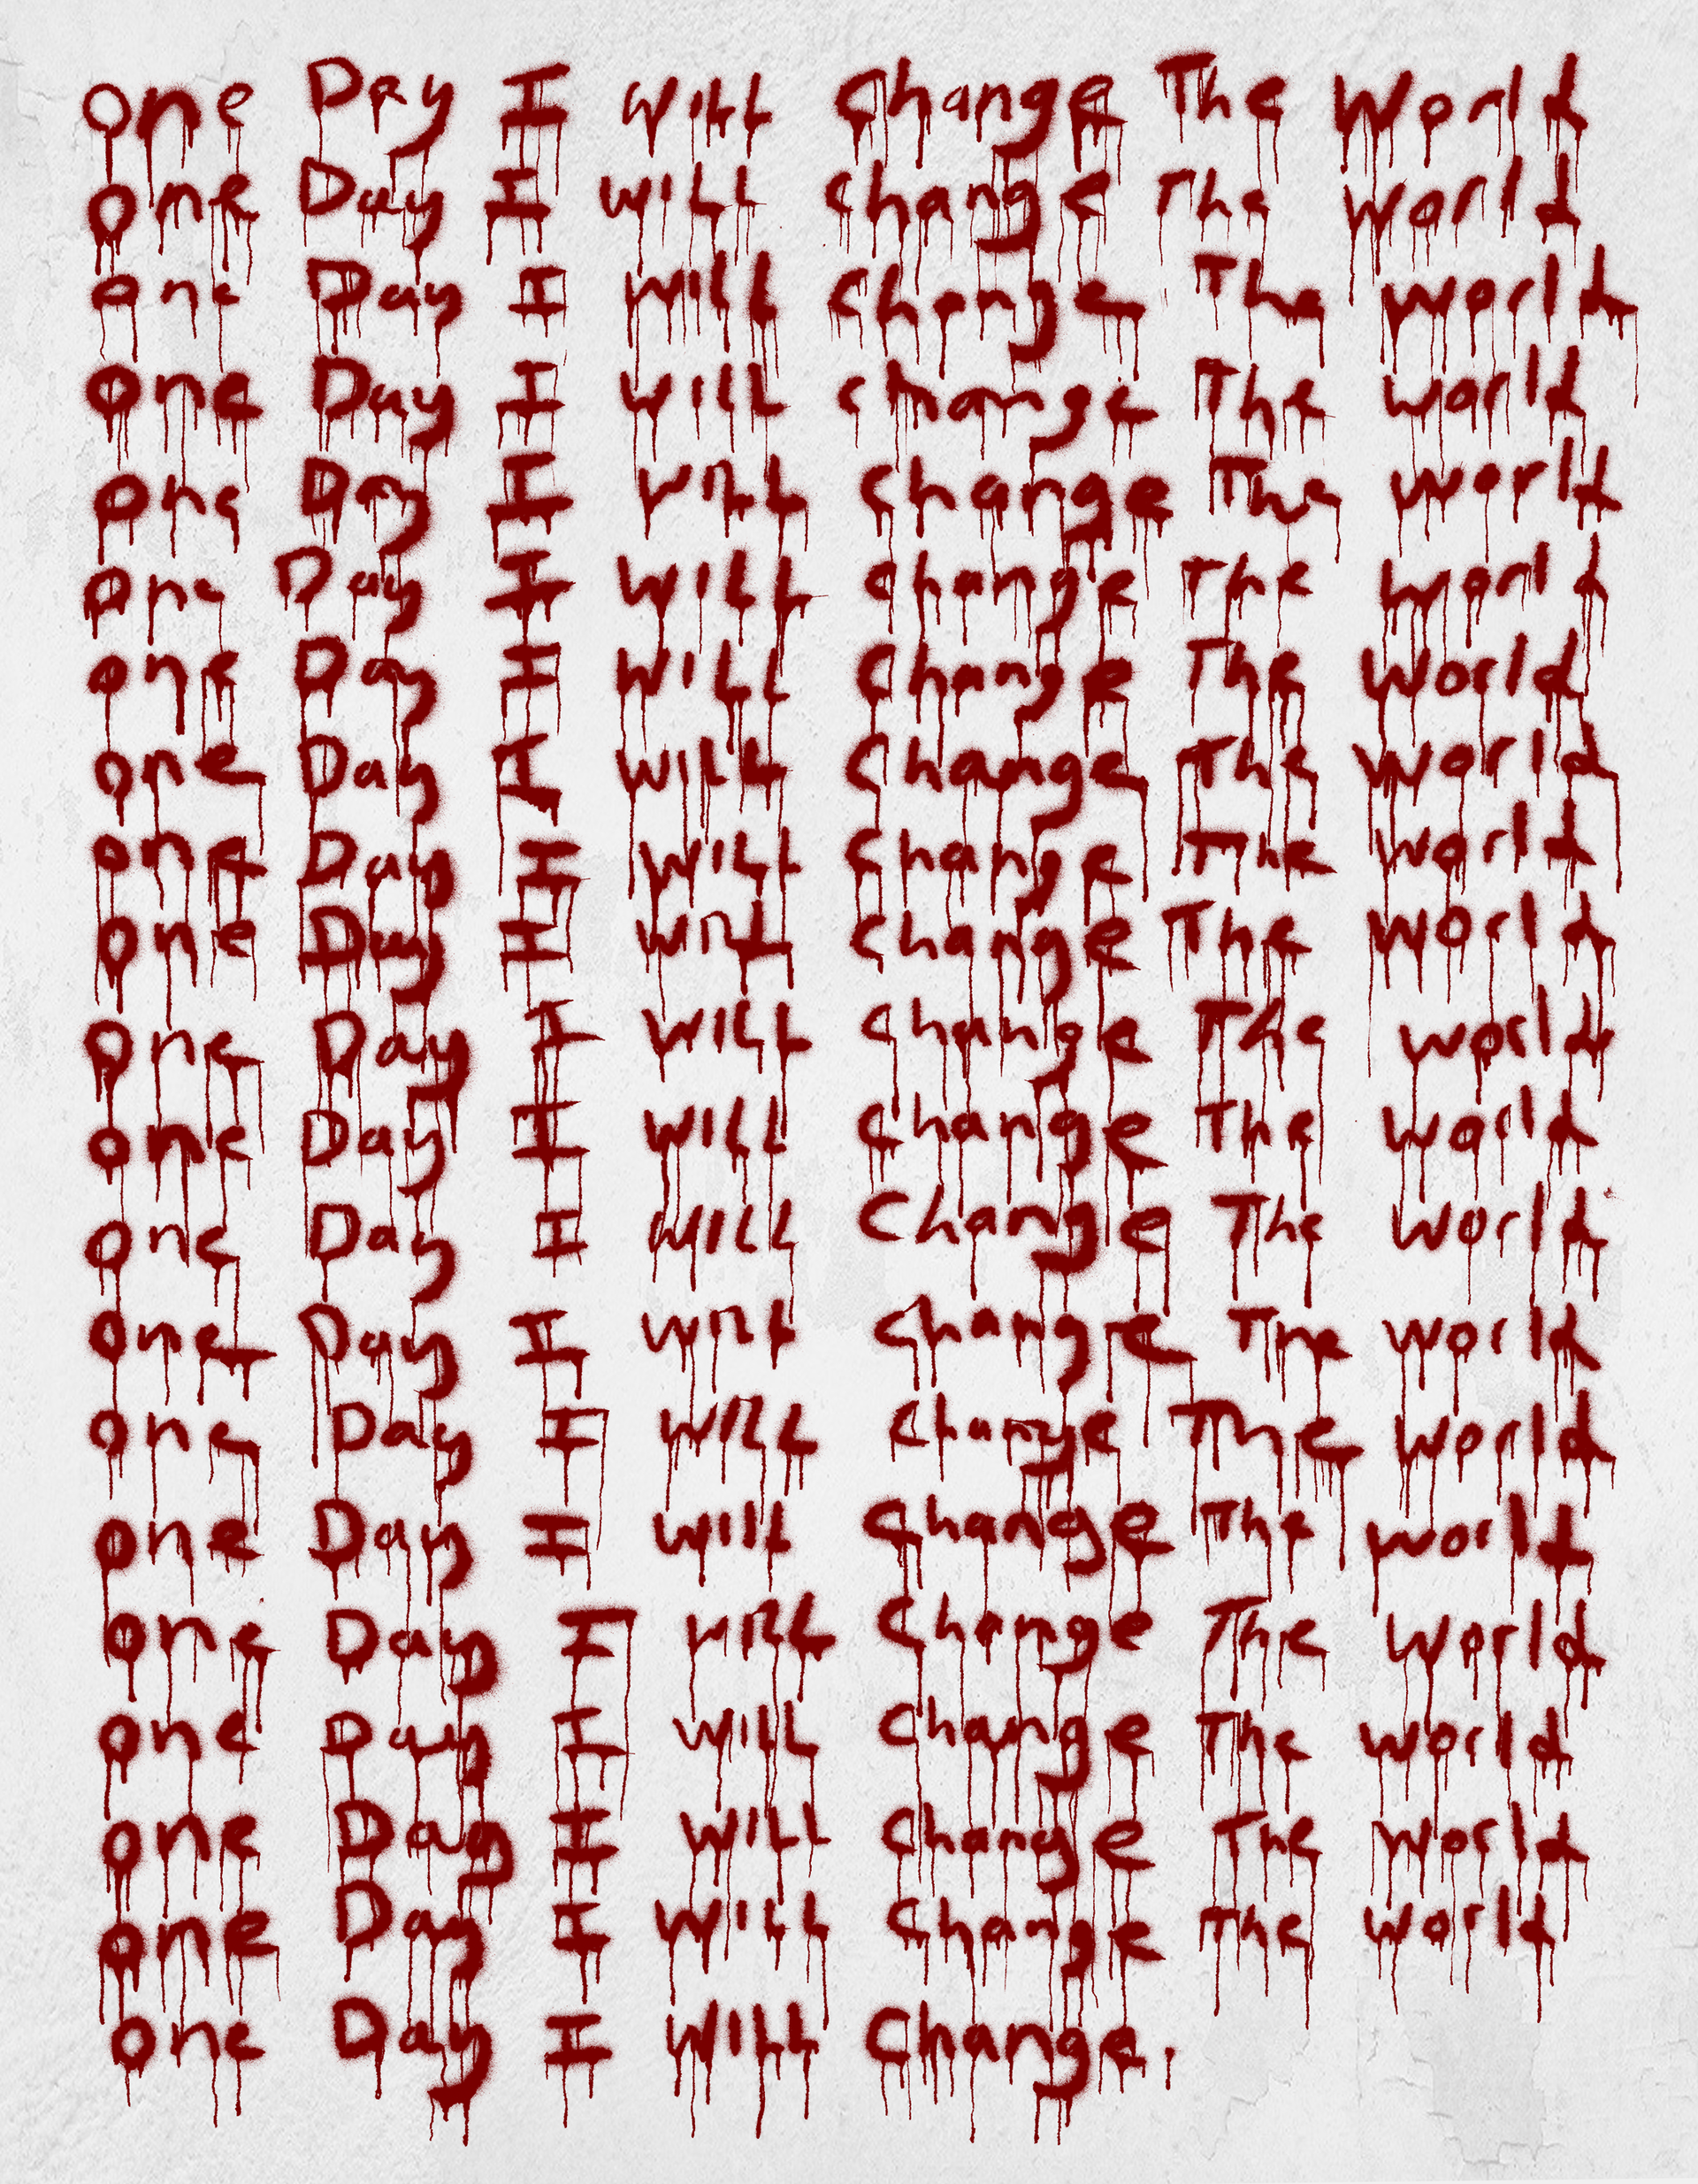 one Day I will change The World
one Day I will change The world
one Day I will change The world
one Day I will change The world
one Day I will change The world
one Day I will change The world
one Day I will change The World
one Day I will Change The world
one Day I will Change The world
one Day I will change The world
one Day I will change The world
one Day I will change The world
one Day I will Change The world
one Day I will change The world
one Day I will Change The world
one Day I will change The world
one Day I will Change The world
one Day I will Change The world
one Day I will Change The world
one Day I will Change The world
one Day I will Change.